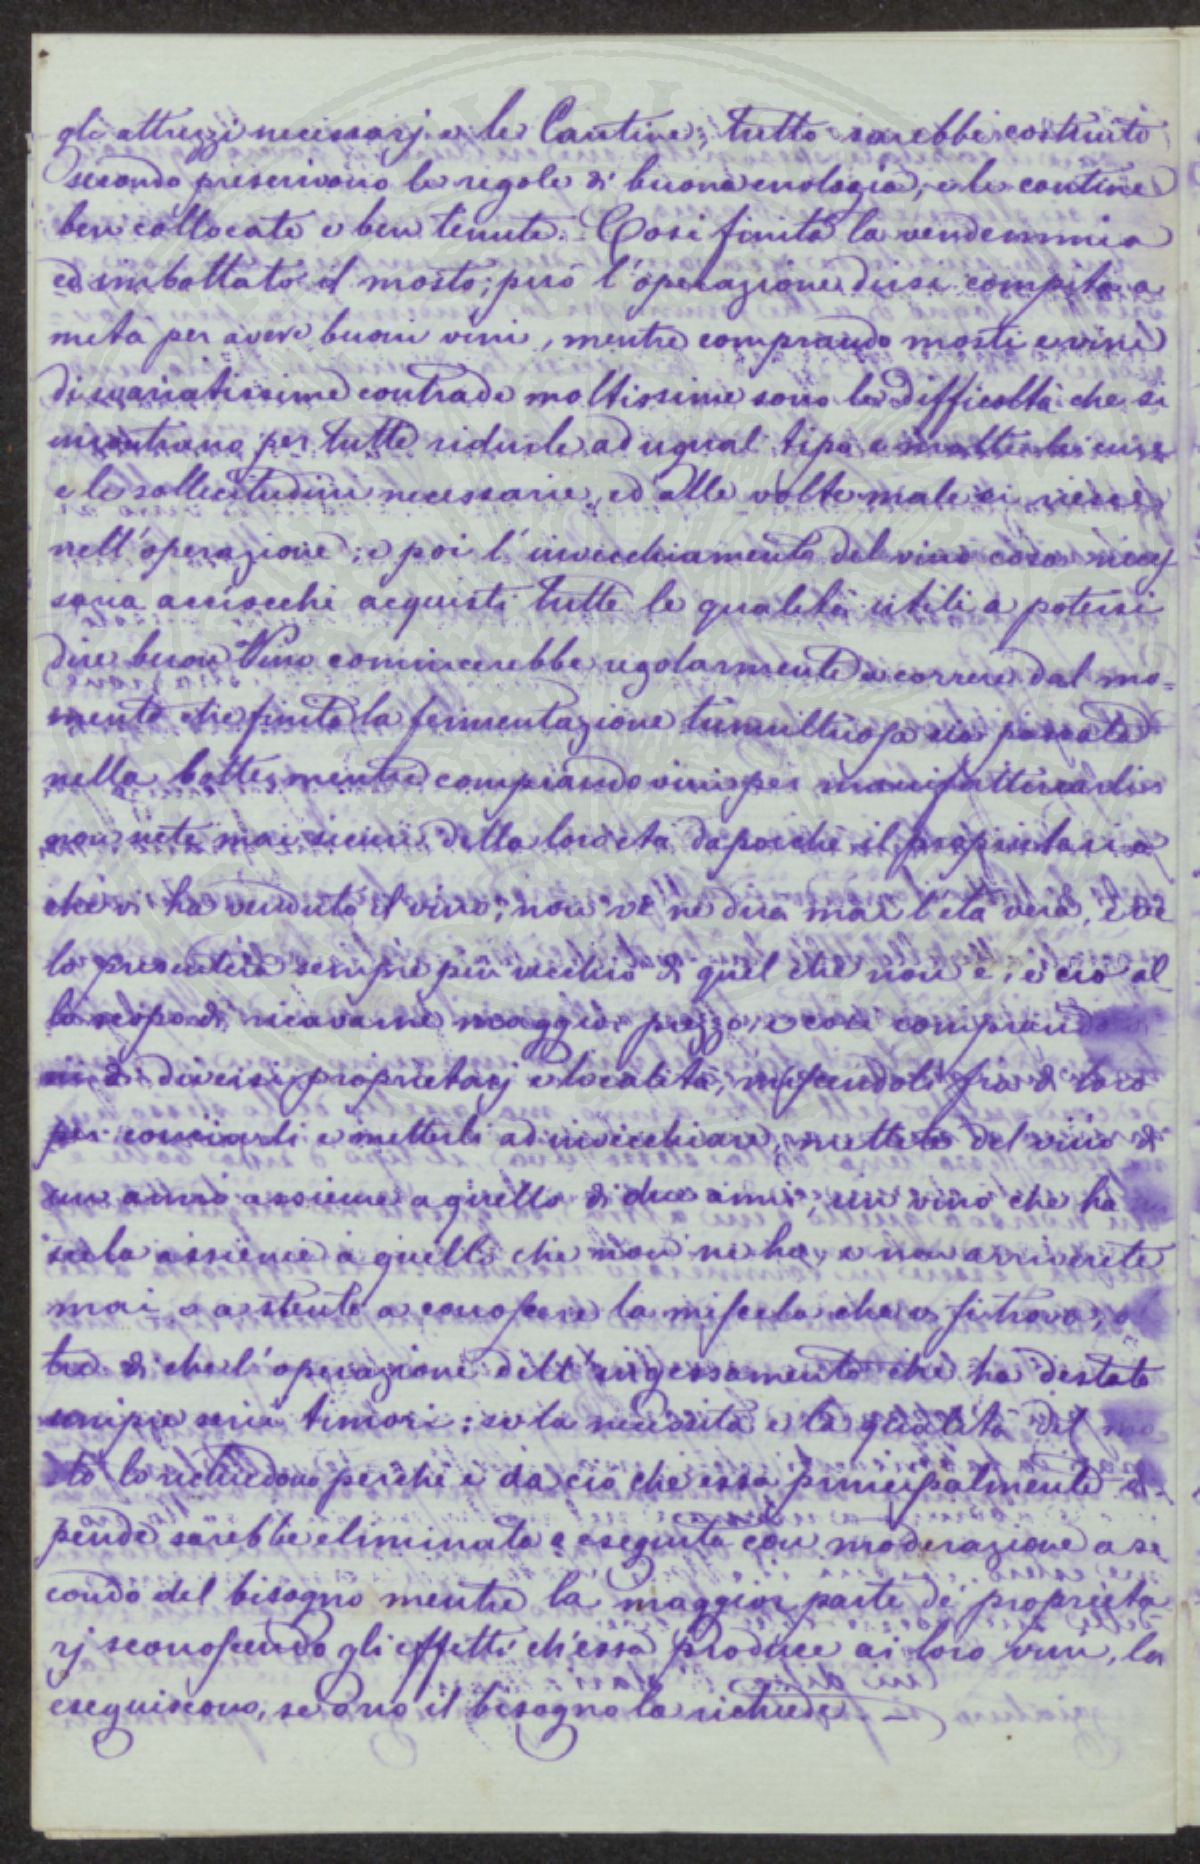 gli attrezzi necessarj e le Cantine; tutto sarebbe costruito
secondo prescrivono le regole di buona enologia, e le cantine
ben collocate e ben tenute. Così finita la vendemmia
ed imbottato il mosto; può l'operazione dirsi compita a
metà per avere buoni vini, mentre comprando mosti e vini
di svariatissime contrade moltissime sono le difficoltà che si
incontrano per tutte ridurle ad ugual tipo e molte le cure
e le sollecitudini necessarie, ed alle volte male si riesce
nell'operazione; e poi l'invecchiamento del vino cosa neces
saria acciocchè acquisti tutte le qualità utili a potersi
dire buon Vino comincerebbe regolarmente a correre dal mo=
mento che finita la fermentazione tumultuosa sia passato
nella botte, mentre comprando vini per manifatturarli
non siete mai sicuri della loro età dapoichè il proprietario
che vi ha venduto il vino; non ve ne dirà mai l'età vera, e ve
lo presenterà sempre più vecchio di quel che non è, e ciò al
lo scopo di ricavarne maggior prezzo; e così comprando
vini di diversi proprietarj e località, miscendoli fra di loro
per conciarli e metterli ad invecchiare, mettete del vino di
un anno assieme a quello di due anni, un vino che ha
assieme a quelli che non ne ha, e non arriverete
mai o a stento a conoscere la miscela che vi si trova; ol
tre di che l'operazione dell'ingessamento che ha destato
sempre serii timori: se la necessità e la qualità del mo
sto lo richiedono perchè è da ciò che essa principalmente di=
pende sarebbe eliminata o eseguita con moderazione a se
condo del bisogno mentre la maggior parte de' proprieta
rj sconoscendo gli effetti ch'essa produce ai loro vini, la
eseguiscono, se o no il bisogno la richiede. —